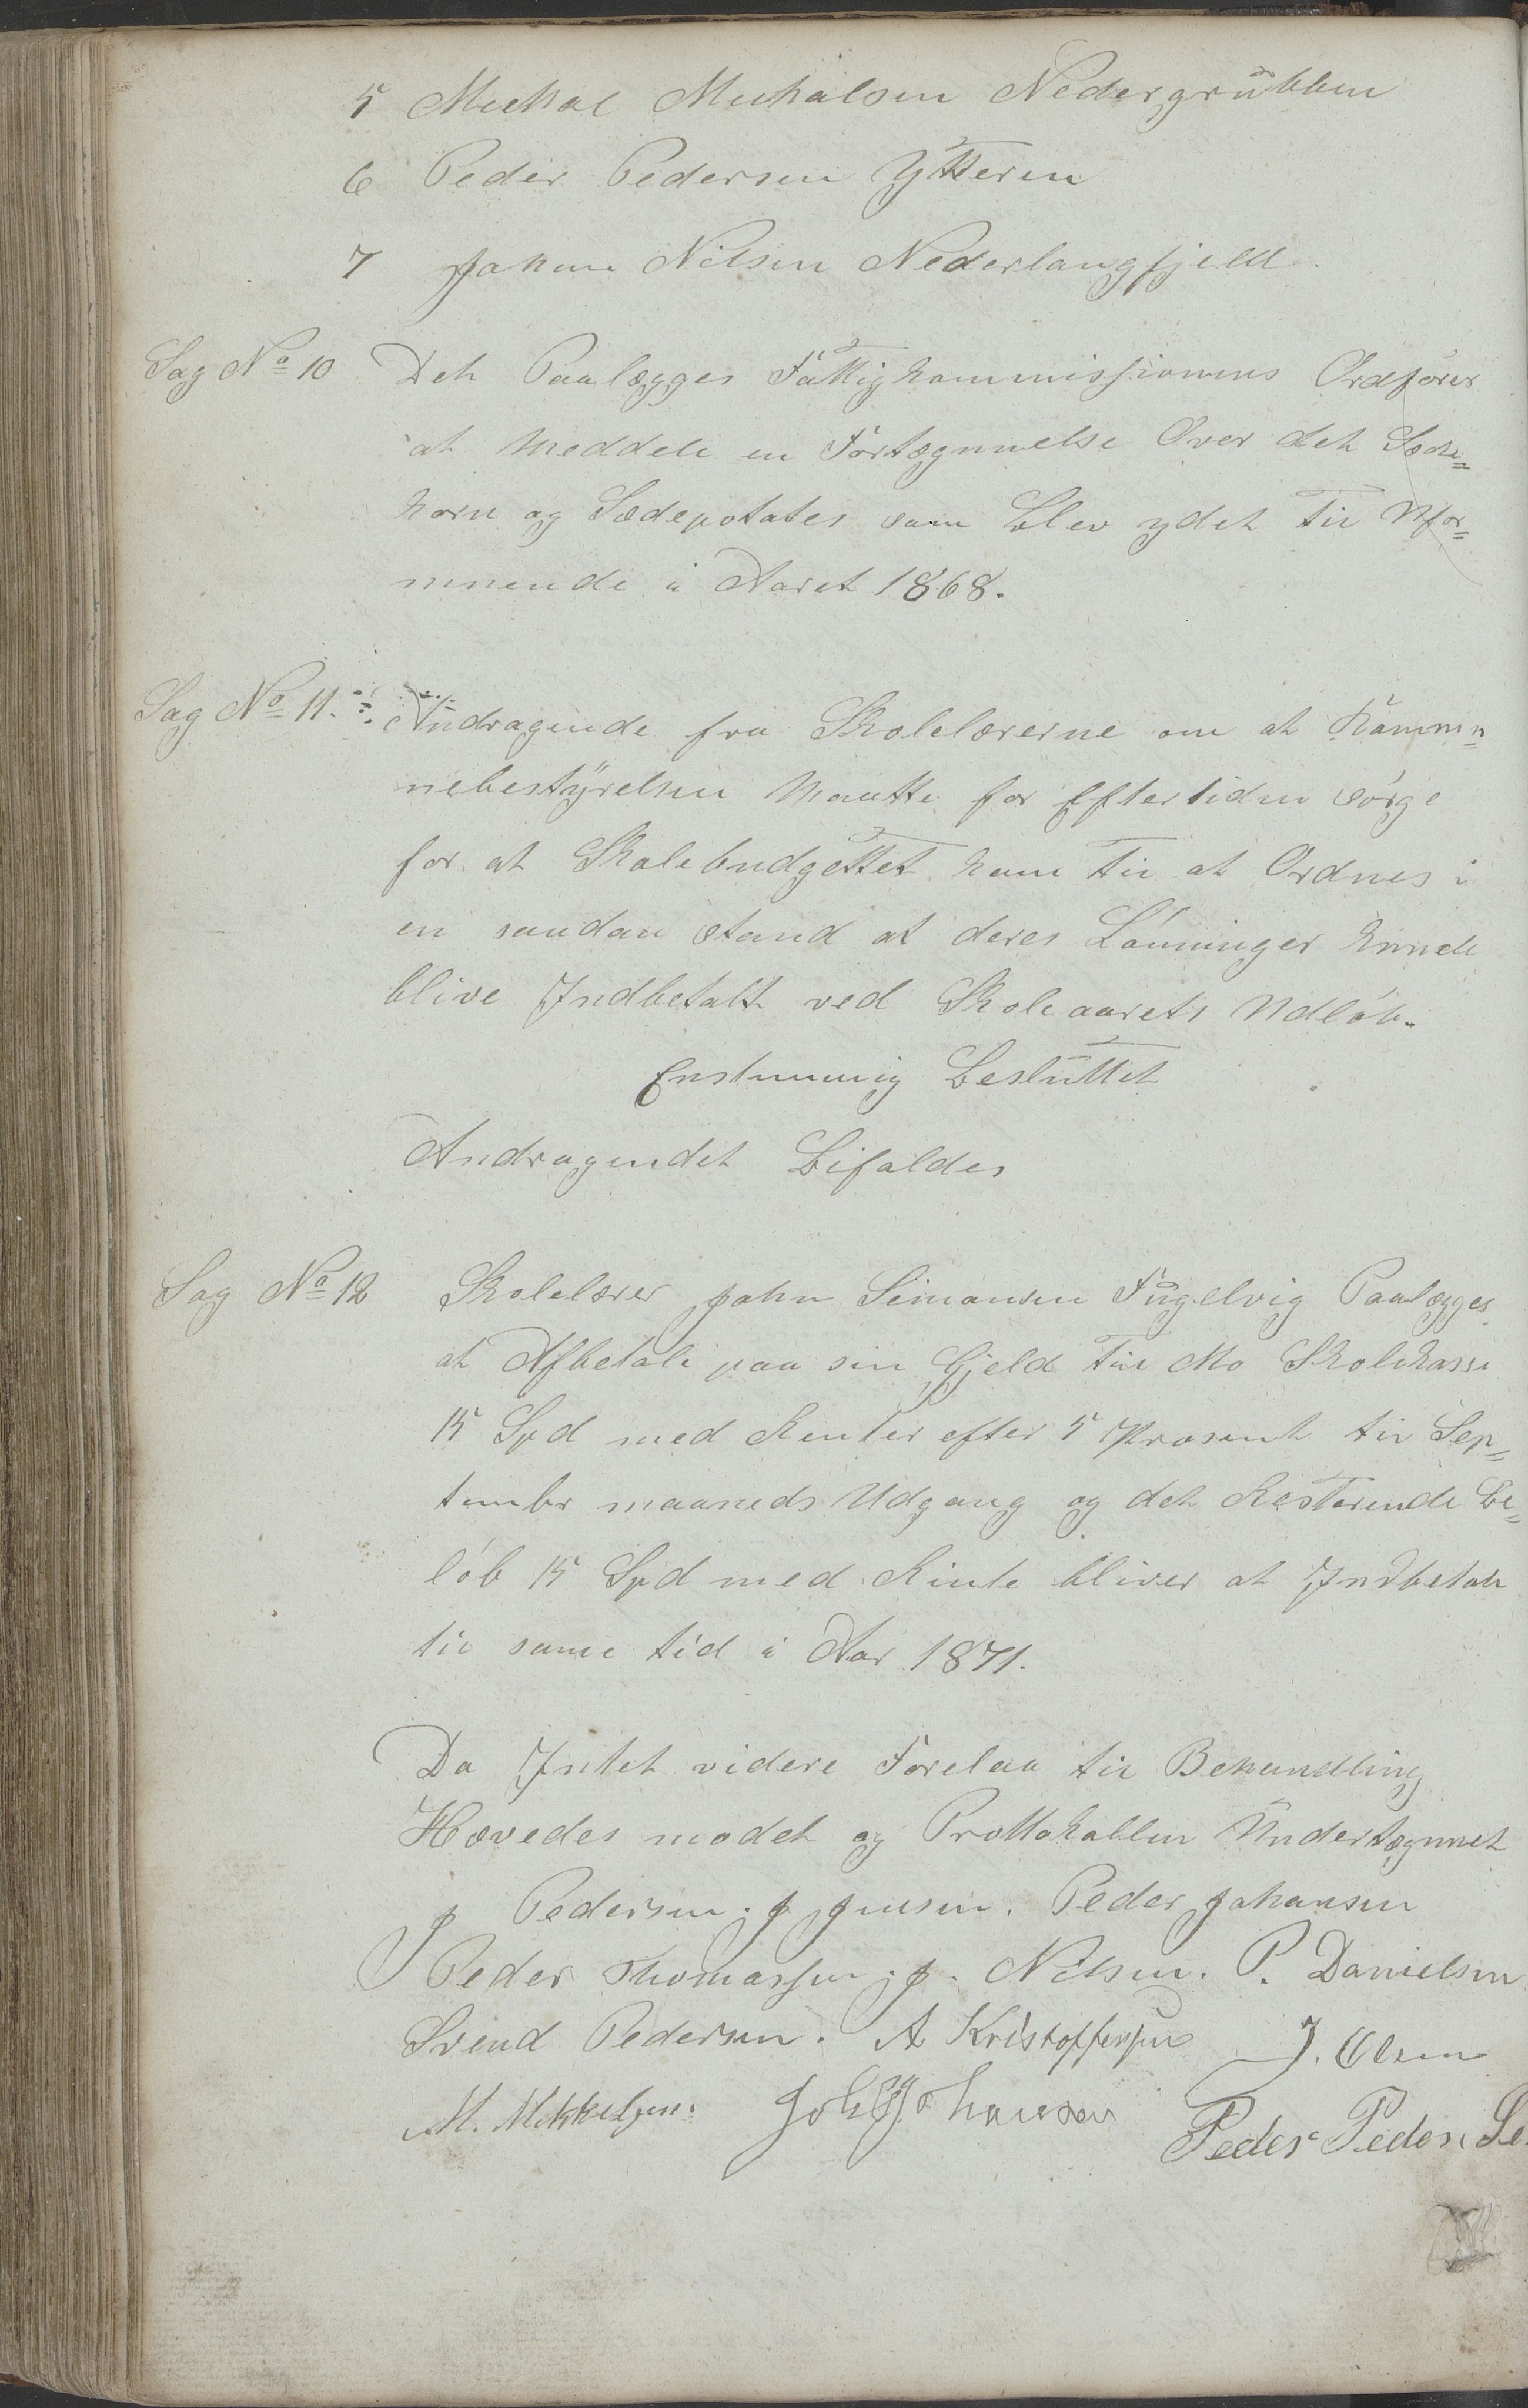 5 Meekal Meekalsen Nedergrubben
6 Peder Pedersen Ytteren
7 Johan Nilsen Nederlangfjeld.
Sag No 10 Deh Paalægges Fattigkommissionens Ordfører
at Meddele en Fortægnnelse Over deh Sæde=
korn og Sædepotates som blev ydeh til Ufor=
mnende i Aaret 1868.
Sag No 11. Andragende fra Skolelærerne om at Komm=
nebestyrelsen Maatte for Eftertiden sørge
for at Skolebudgettet kom til at Ordnes i
en saadan stand at deres Lønninger kunde
blive Indbetalt ved Skoleaarets Udløb.
Enstemmig Besluttet
Andragendet Bifaldes
Sag No 12 Skolelærer John Simonsen Fugelvig Paalægges
at Afbetale paa sin Gjeld til Mo Skolekasse
15 Spd med Renter efter 5 Prosent til Sep=
tember maaneds Udgang og deh Resterende Be=
løb 15 Spd med Rente bliver at Indbetale
til same tid i Aar 1871.
Da Intet videre Forelaa til Behandling
Hævedes mødet og Prottokollen Undertægnnet
J Pedersen. J Jensen. Peder Johansen
Peder Thomassen. J. Nilsen. P. Danielsen
Svend Pedersen. A Kristoffersen J. Olsen
M. Mikkelsen. Joh Johansen
Peder Peders. Se